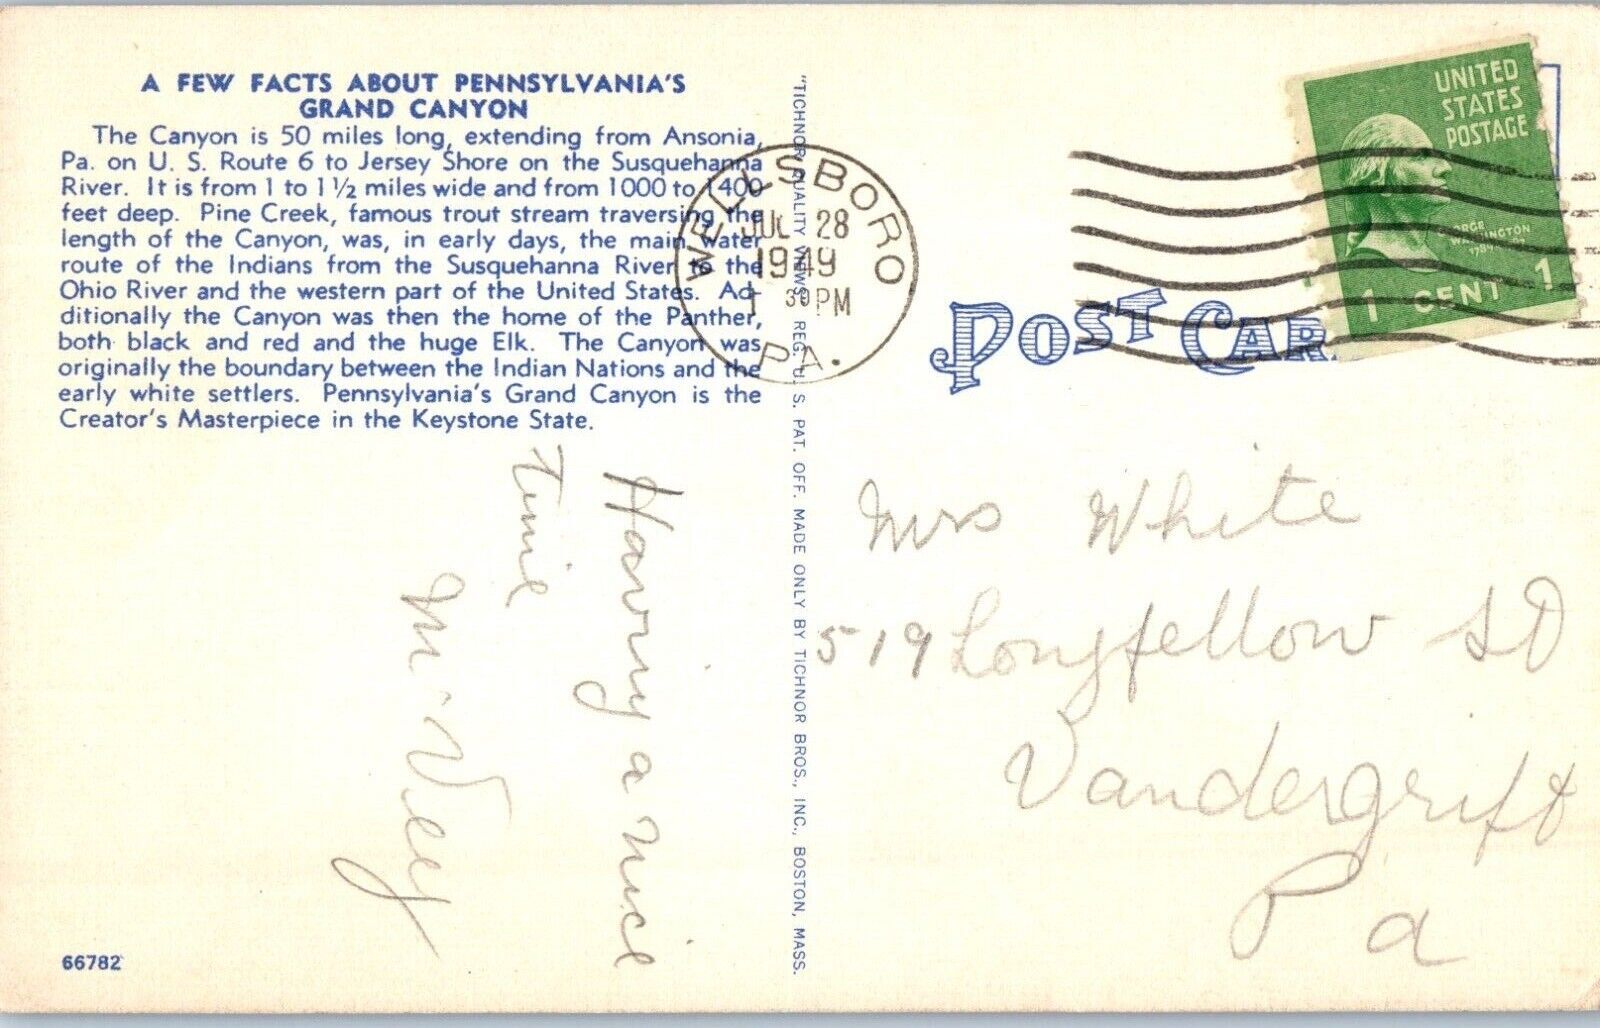 A FEW FACTS ABOUT PENNSYLVANIA'S
GRAND CANYON
The Canyon is 50 miles long, extending from Ansonia,
Pa. on U. S. Route 6 to Jersey Shore on the Susquehanna
River. It is from 1 to 1 1/2 miles wide and from 1000 to 1400
feet deep. Pine Creek, famous trout stream traversing the
length of the Canyon, was, in early days, the main water
route of the Indians from the Susquehanna River to the
Ohio River and the western part of the United States. Ad-
ditionally the Canyon was then the home of the Panther,
both black and red and the huge Elk. The Canyon was
originally the boundary between the Indian Nations and the
early white settlers. Pennsylvania's Grand Canyon is the
Creator's Masterpiece in the Keystone State.
Having a nice
time
66782
"TICHNOR QUALITY VIEWS" REG. U. S. PAT. OFF. MADE ONLY BY TICHNOR BROS., INC., BOSTON, MASS.
WELLSBORO
JUL 28
1949
1 30 PM
PA.
UNITED
STATES
POSTAGE
WASHINGTON
1 CENT 1
POST CAR
Mrs White
519 Longfellow
Vandergrift
Pa